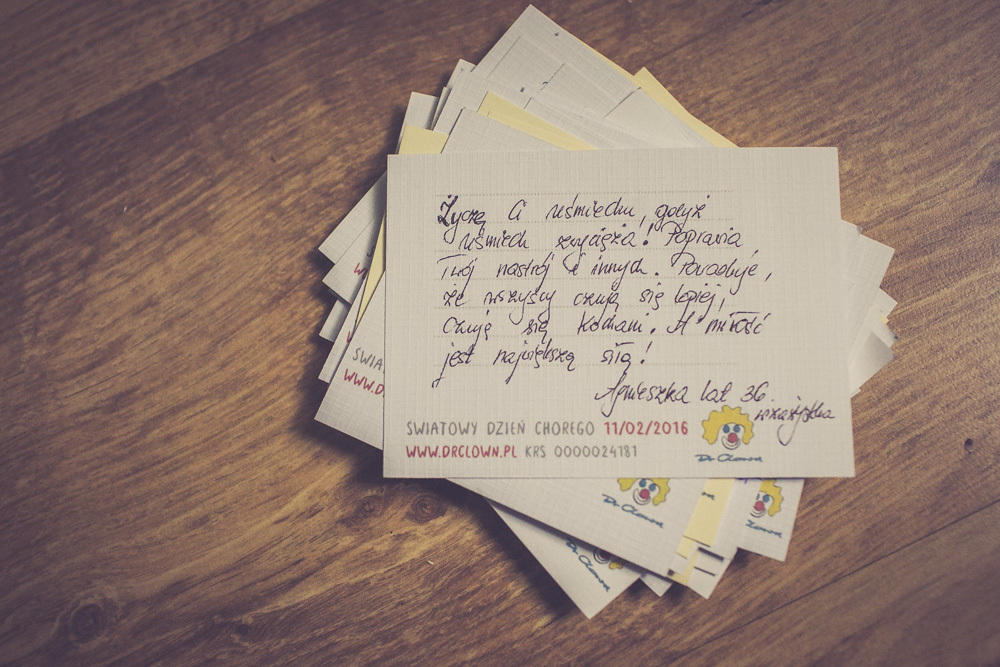 Życzę Ci uśmiechu, gdyż
uśmiech zwycięża! Poprawia
Twój nastrój i innych. Powoduje,
że wszyscy czują się lepiej,
czują się kochani. A miłość
jest największą siłą!
Agnieszka lat 36.
ŚWIATOWY DZIEŃ CHOREGO 11/02/2016
WWW.DRCLOWN.PL KRS 0000024181
Dr Clown
ŚWIA
WWW.D
Dr Clown